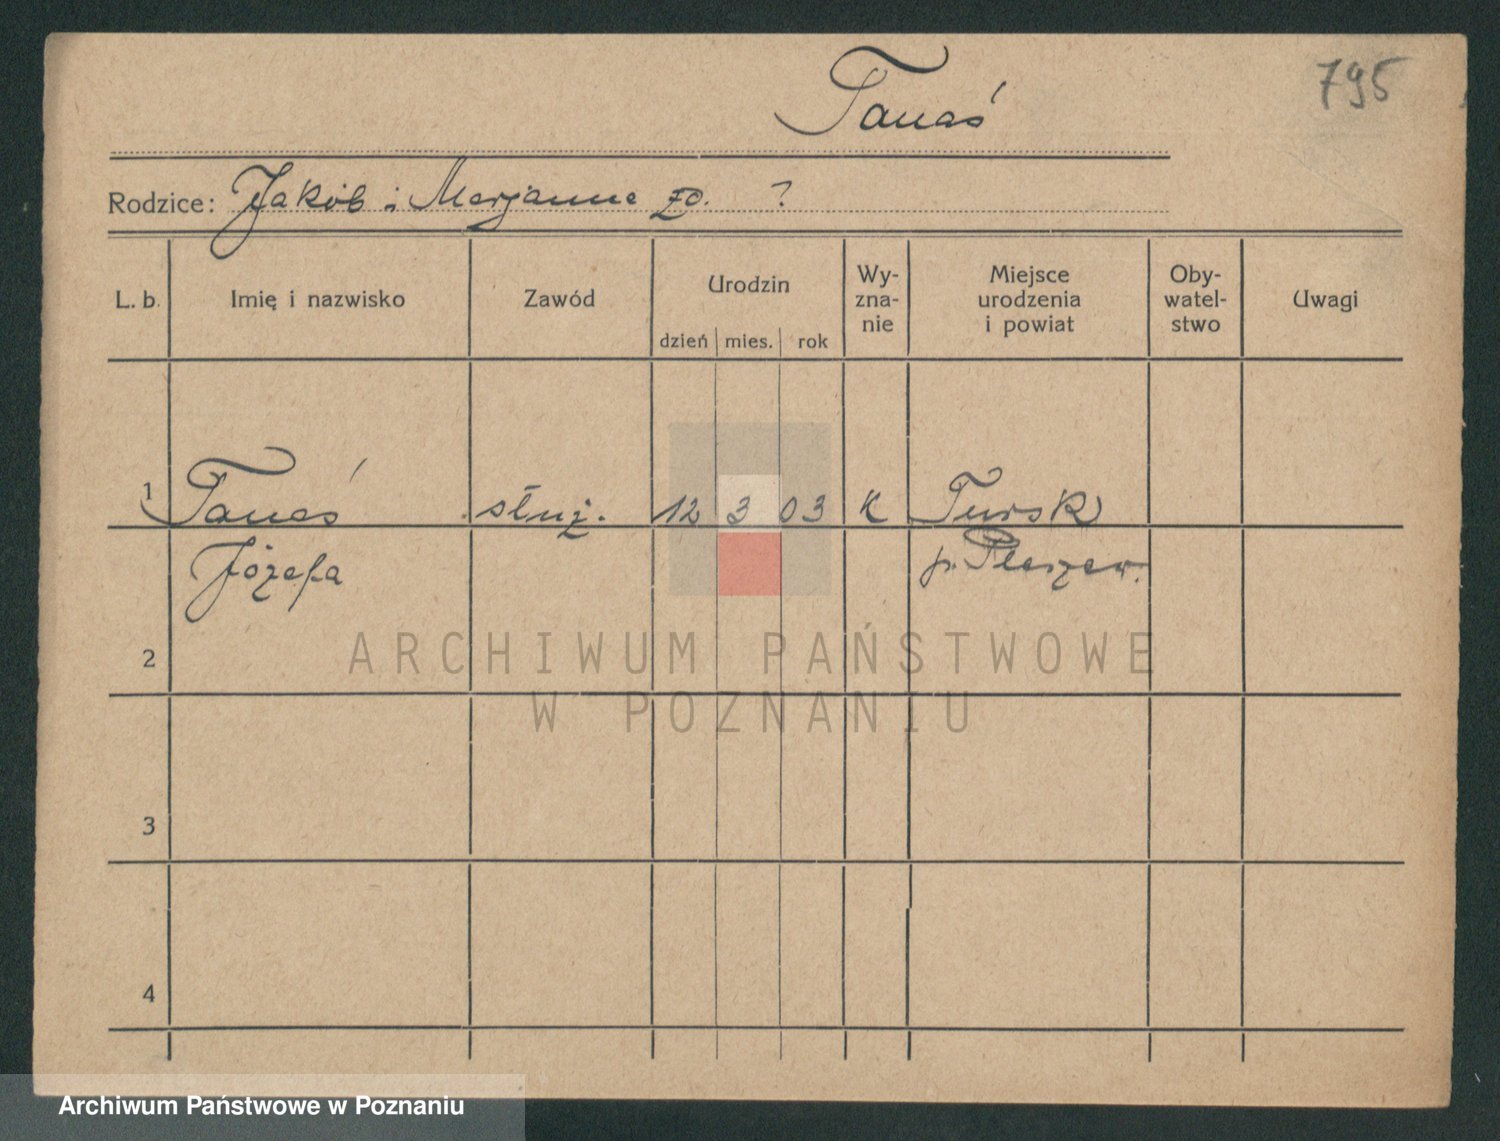 795
Tanaś
Rodzice: Jakób i Marjanna zd. ?
L. b. Imię i nazwisko Zawód Urodzin dzień mies. rok Wy-zna-nie Miejsce urodzenia i powiat Oby-watel-stwo Uwagi
1 Tanaś służ. 12 3 03 K Tursk
Józefa p. Pleszew.
2
3
4
ARCHIWUM PAŃSTWOWE
W POZNANIU
Archiwum Państwowe w Poznaniu